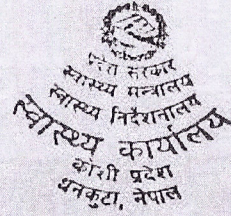 प्रदेश सरकार
स्वास्थ्य मन्त्रालय
स्वास्थ्य निर्देशनालय
स्वास्थ्य कार्यालय
कोशी प्रदेश
धनकुटा, नेपाल